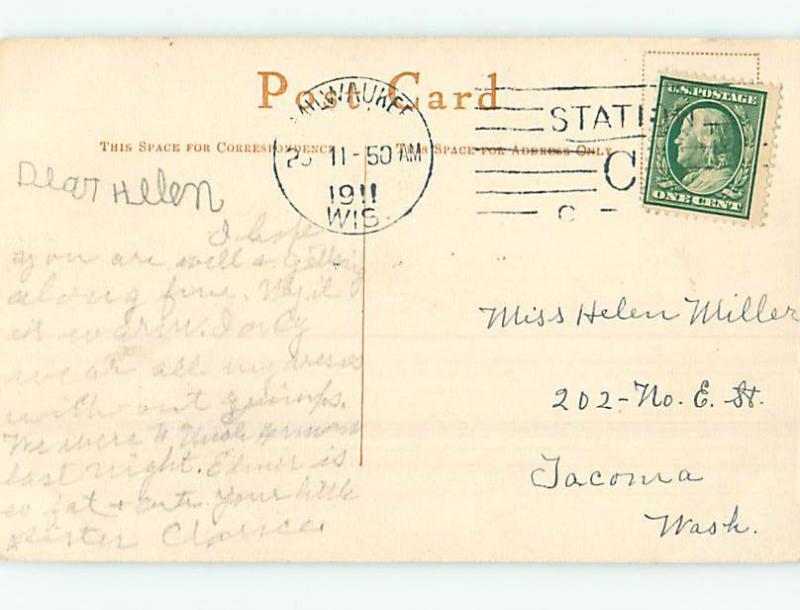 Post Card
THIS SPACE FOR CORRESPONDENCE
THIS SPACE FOR ADDRESS ONLY
MILWAUKEE
11-50 AM
1911
WIS.
STATION
C
U.S. POSTAGE
ONE CENT
Dear Helen
I hope
you are well & getting
along fine. My it
is warm. I only
wear all my dresses
without guimps.
We were to Uncle
last night. Elmer is
so fat & cute. Your little
sister Clarice
Miss Helen Miller
202-No. E. St.
Tacoma
Wash.